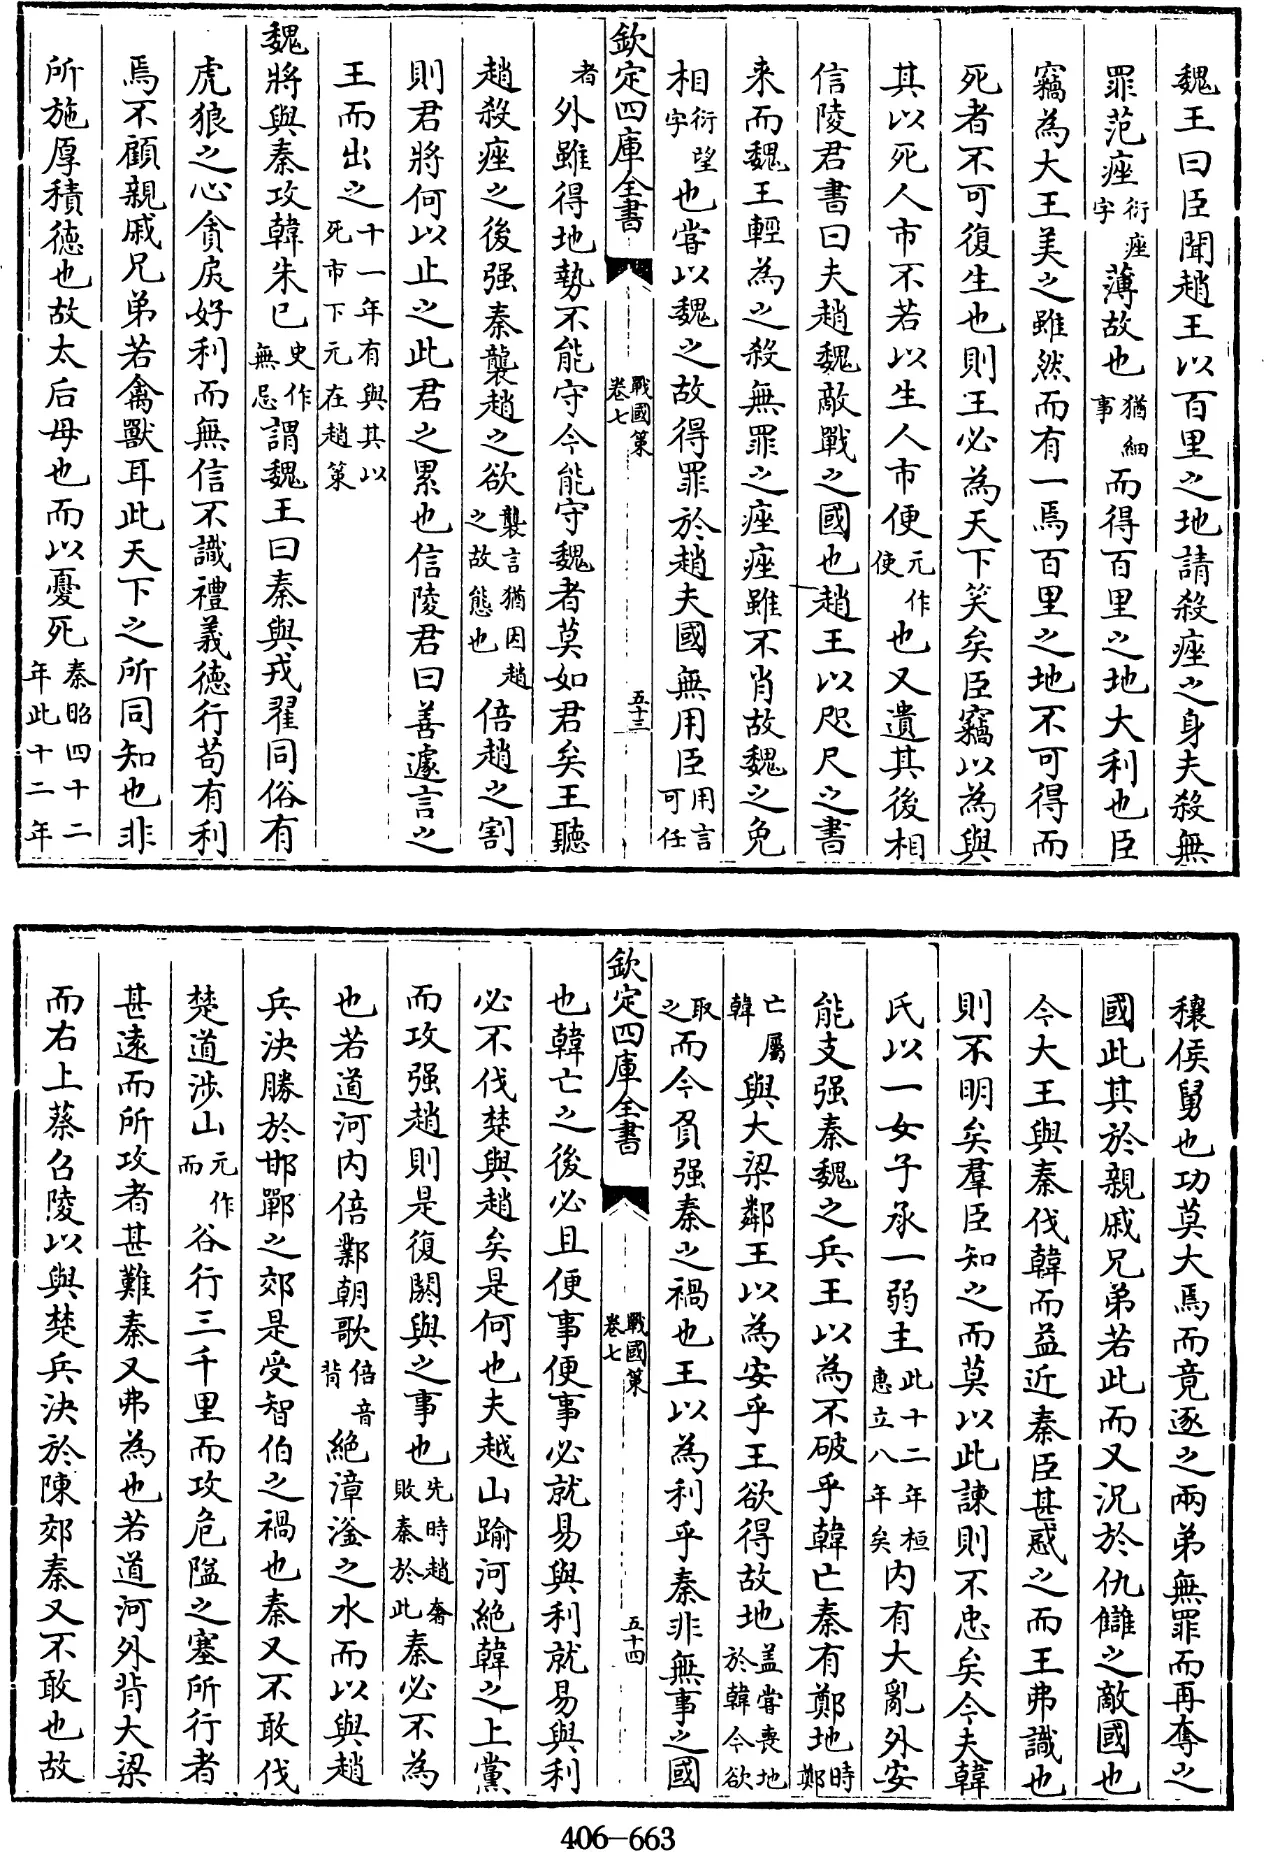 魏王曰臣聞趙王以百里之地請殺痤之身夫殺無
罪范痤衍痤字薄故也猶細事而得百里之地大利也臣
竊為大王美之雖然而有一焉百里之地不可得而
死者不可復生也則王必為天下笑矣臣竊以為與
其以死人市不若以生人市便元作使也又遺其後相
信陵君書曰夫趙魏敵戰之國也趙王以咫尺之書
来而魏王輕為之殺無罪之痤痤雖不肖故魏之免
相衍望字也嘗以魏之故得罪於趙夫國無用臣用言可任
欽定四庫全書 戰國策卷七 五十三
者外雖得地勢不能守今能守魏者莫如君矣王聽
趙殺痤之後强秦襲趙之欲襲言猶因趙之故態也倍趙之割
則君將何以止之此君之累也信陵君曰善遽言之
王而出之十一年有與其以死市下元在趙策
魏將與秦攻韓朱已史作無忌謂魏王曰秦與戎翟同俗有
虎狼之心貪戾好利而無信不識禮義德行苟有利
焉不顧親戚兄弟若禽獸耳此天下之所同知也非
所施厚積德也故太后母也而以憂死秦昭四十二年此十二年
穰侯舅也功莫大焉而竟逐之兩弟無罪而再奪之
國此其於親戚兄弟若此而又況於仇讎之敵國也
今大王與秦伐韓而益近秦臣甚惑之而王弗識也
則不明矣羣臣知之而莫以此諫則不忠矣今夫韓
氏以一女子承一弱主此十二年桓惠立八年矣內有大亂外安
能支强秦魏之兵王以為不破乎韓亡秦有鄭地時鄭
亡屬韓與大梁鄰王以為安乎王欲得故地盖嘗喪地於韓今欲
取之而今負强秦之禍也王以為利乎秦非無事之國
欽定四庫全書 戰國策卷七 五十四
也韓亡之後必且便事便事必就易與利就易與利
必不伐楚與趙矣是何也夫越山踰河絶韓之上黨
而攻强趙則是復閼與之事也先時趙奢敗秦於此秦必不為
也若道河內倍鄴朝歌倍音背絶漳滏之水而以與趙
兵決勝於邯鄲之郊是受智伯之禍也秦又不敢伐
楚道涉山元作而谷行三千里而攻危隘之塞所行者
甚遠而所攻者甚難秦又弗為也若道河外背大梁
而右上蔡召陵以與楚兵決於陳郊秦又不敢也故
406—663